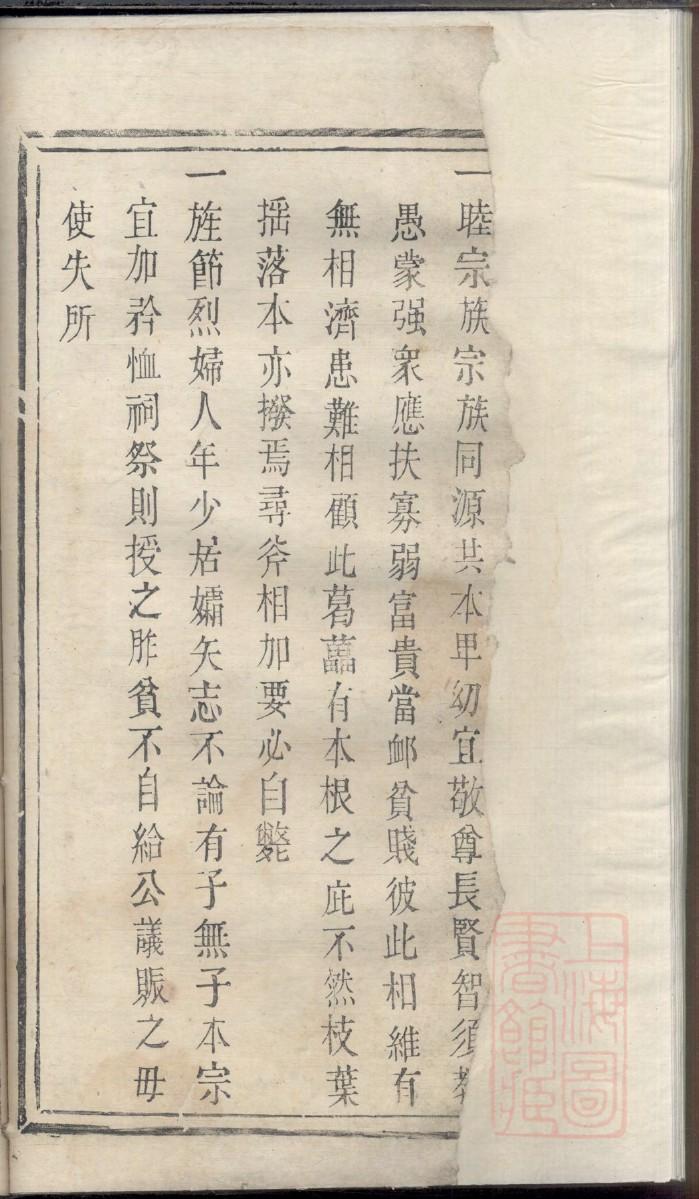 一睦宗族宗族同源共本卑幼宜敬尊長賢智須教
愚蒙强衆應扶寡弱富貴當䘏貧賤彼此相維有
無相濟患難相顧此葛藟有本根之庇不然枝葉
揺落本亦撥焉尋斧相加要必自斃
一旌節烈婦人年少居孀矢志不論有子無子本宗
宜加矜恤祠祭則授之胙貧不自給公議賑之毋
使失所
上海圖
書館藏